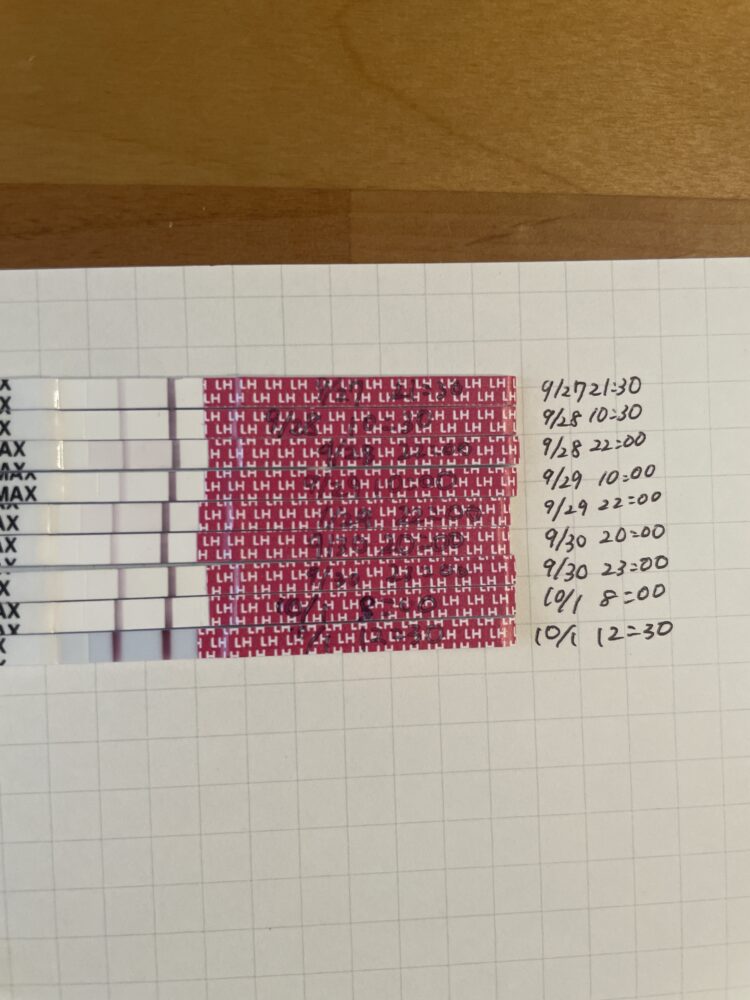 X 9/27 21:30 9/27 21:30
X 9/28 10:30 9/28 10:30
AX 9/28 22:00 9/28 22:00
MAX 9/29 10:00 9/29 10:00
AX 9/29 22:00 9/29 22:00
AX 9/30 20:00 9/30 20:00
X 9/30 23:00 9/30 23:00
AX 10/1 8:00 10/1 8:00
X 10/1 12:30 10/1 12:30
LH LH LH LH LH LH LH